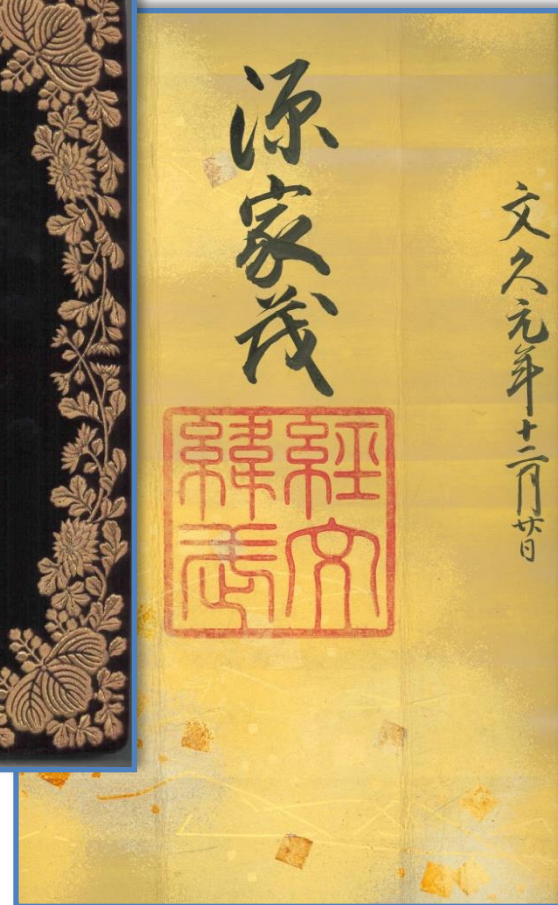 文久元年十二月廿日
源家茂
經文
緯武